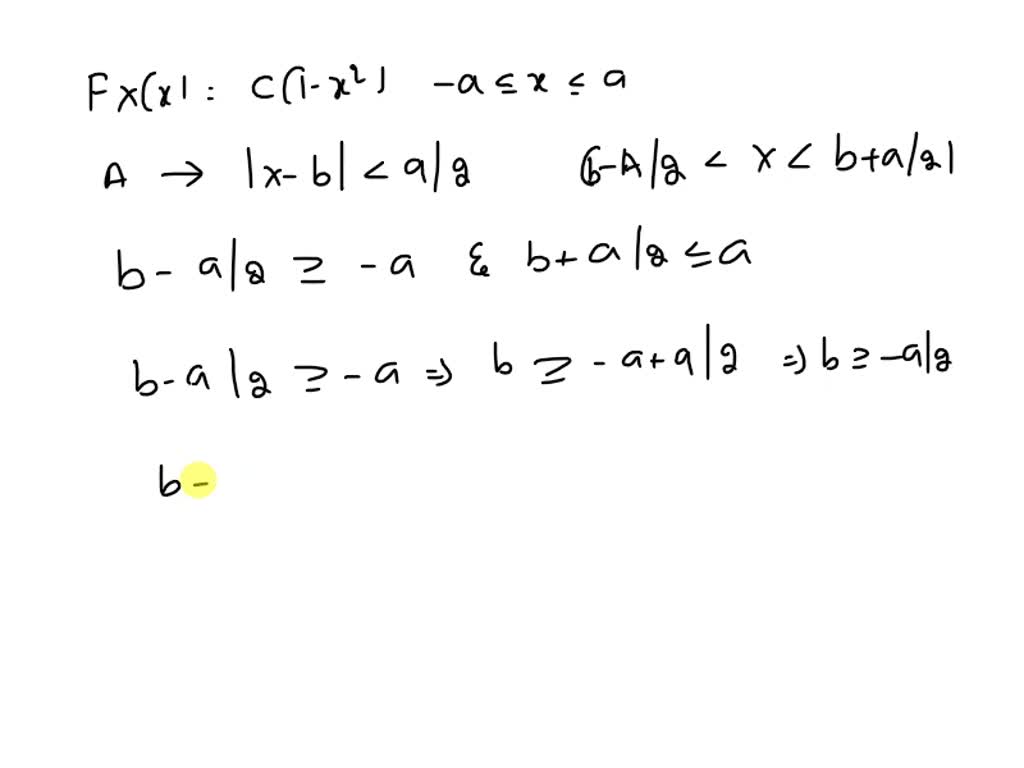 Fx(x) : C(1-x²) -a ≤ x ≤ a
A → |x-b| < a/2 (b-A/2 < x < b+a/2)
b - a/2 ≥ -a & b+a/2 ≤ a
b-a/2 ≥ -a ⇒ b ≥ -a+a/2 ⇒ b ≥ -a/2
b -